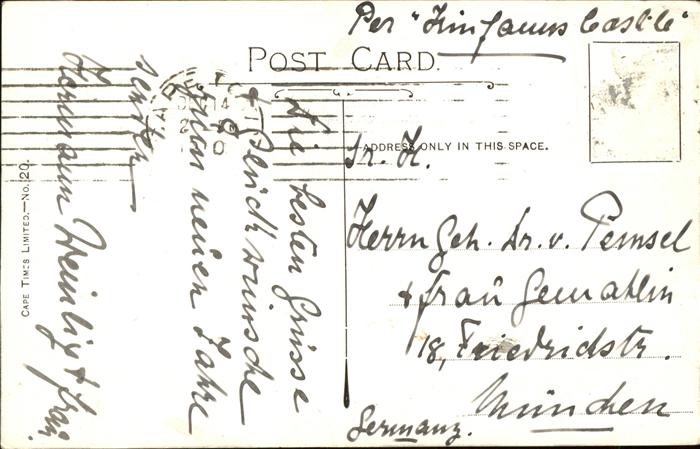 Per "Kinfauns Castle"
POST CARD.
ADDRESS ONLY IN THIS SPACE.
Sr. H.
Herrn Geh. Dr. v. Pemsel
+ frau Gemahlin
18, Friedrichstr.
München
Germany.
Die besten Grüsse
+ Glückwünsche
zum neuen Jahre
senden
Hermann & Frau
CAPE TIMES LIMITED.—No. 20.